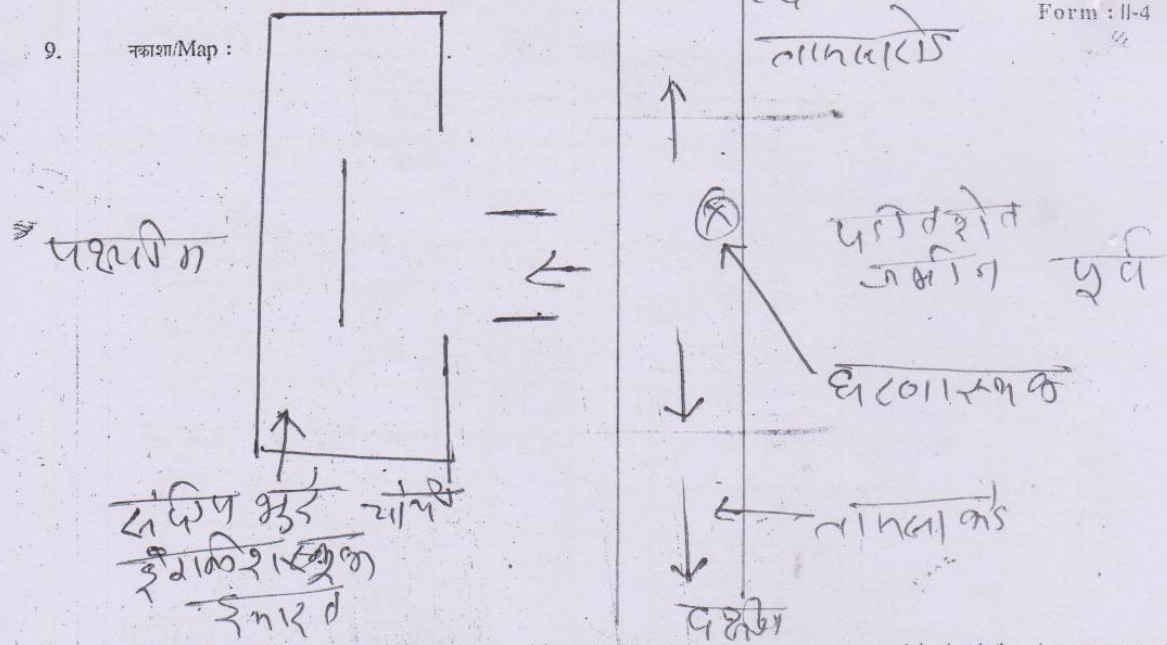 Form : II-4
9. नकाशा/Map :
पश्चीम
पडीत शेत
जमीन
पूर्व
घटणास्थळ
संदिप भुरे यांचे
इंग्लिश स्कूल
इमारत
दक्षीण